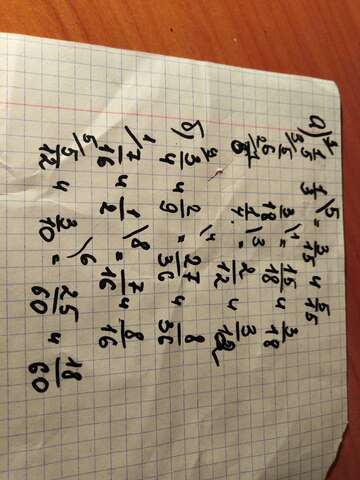 а) 1/5 1/3 \5 = 3/15 и 5/15
3\ 5/6 3/18 \1 = 15/18 и 3/18
1/4 \3 = 2/12 и 3/12
б) 9\ 3/4 и 2/9 \4 = 27/36 и 8/36
1\ 7/16 и 1/2 \8 = 7/16 и 8/16
5\ 5/12 и 3/10 \6 = 25/60 и 18/60